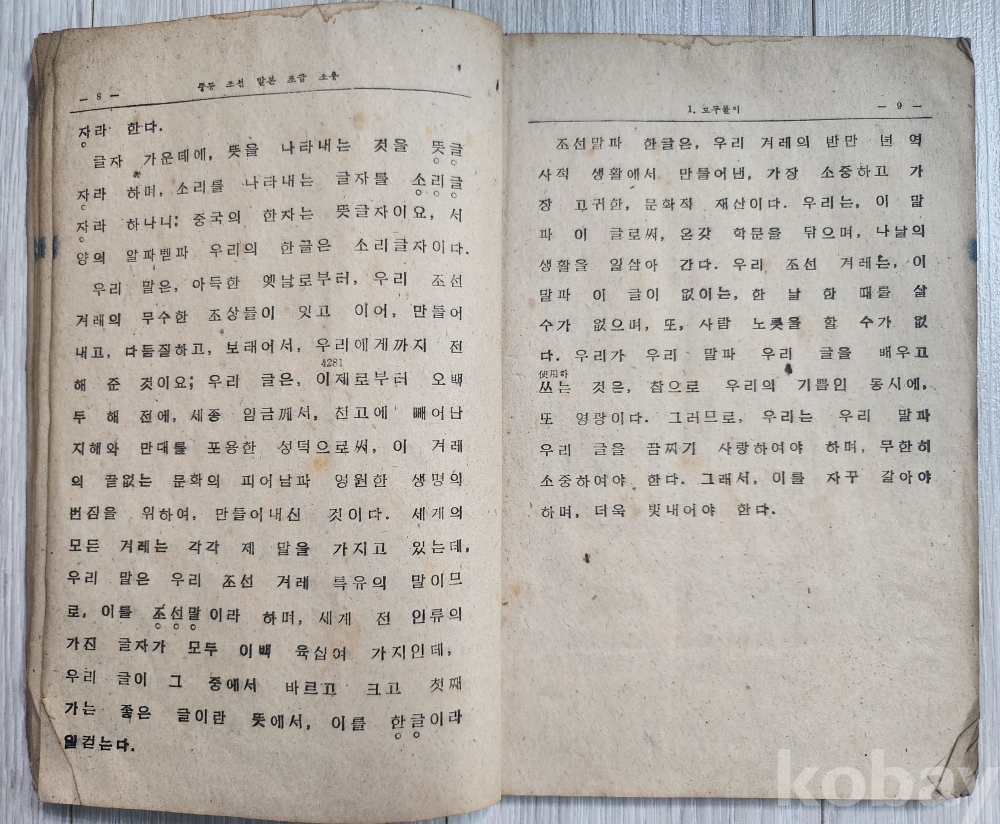 — 8 —
중등 조선 말본 초급 소용
자라 한다.
글자 가운데에, 뜻을 나타내는 것을 뜻글
자라 하며, 소리를 나타내는 글자를 소리글
자라 하나니; 중국의 한자는 뜻글자이요, 서
양의 알파벧과 우리의 한글은 소리글자이다.
우리 말은, 아득한 옛날로부터, 우리 조선
겨레의 무수한 조상들이 잇고 이어, 만들어
내고, 다듬질하고, 보래어서, 우리에게까지 전
4281
해 준 것이요; 우리 글은, 이제로부터 오백
두 해 전에, 세종 임금께서, 천고에 빼어난
지혜와 만대를 포용한 성덕으로써, 이 겨레
의 끝없는 문화의 피어남과 영원한 생명의
번짐을 위하여, 만들어내신 것이다. 세계의
모든 겨레는 각각 제 말을 가지고 있는데,
우리 말은 우리 조선 겨레 특유의 말이므
로, 이를 조선말이라 하며, 세계 전 인류의
가진 글자가 모두 이백 육십여 가지인데,
우리 글이 그 중에서 바르고 크고 첫째
가는 좋은 글이란 뜻에서, 이를 한글이라
일컫는다.
1. 모두풀이
— 9 —
조선말과 한글은, 우리 겨레의 반만 년 역
사적 생활에서 만들어낸, 가장 소중하고 가
장 고귀한, 문화적 재산이다. 우리는, 이 말
과 이 글로써, 온갖 학문을 닦으며, 나날의
생활을 일삼아 간다. 우리 조선 겨레는, 이
말과 이 글이 없이는, 한 날 한 때를 살
수가 없으며, 또, 사람 노릇을 할 수가 없
다. 우리가 우리 말과 우리 글을 배우고
使用하
쓰는 것은, 참으로 우리의 기쁨인 동시에,
또 영광이다. 그러므로, 우리는 우리 말과
우리 글을 끔찌기 사랑하여야 하며, 무한히
소중하여야 한다. 그래서, 이를 자꾸 갈아야
하며, 더욱 빛내어야 한다.
kobay